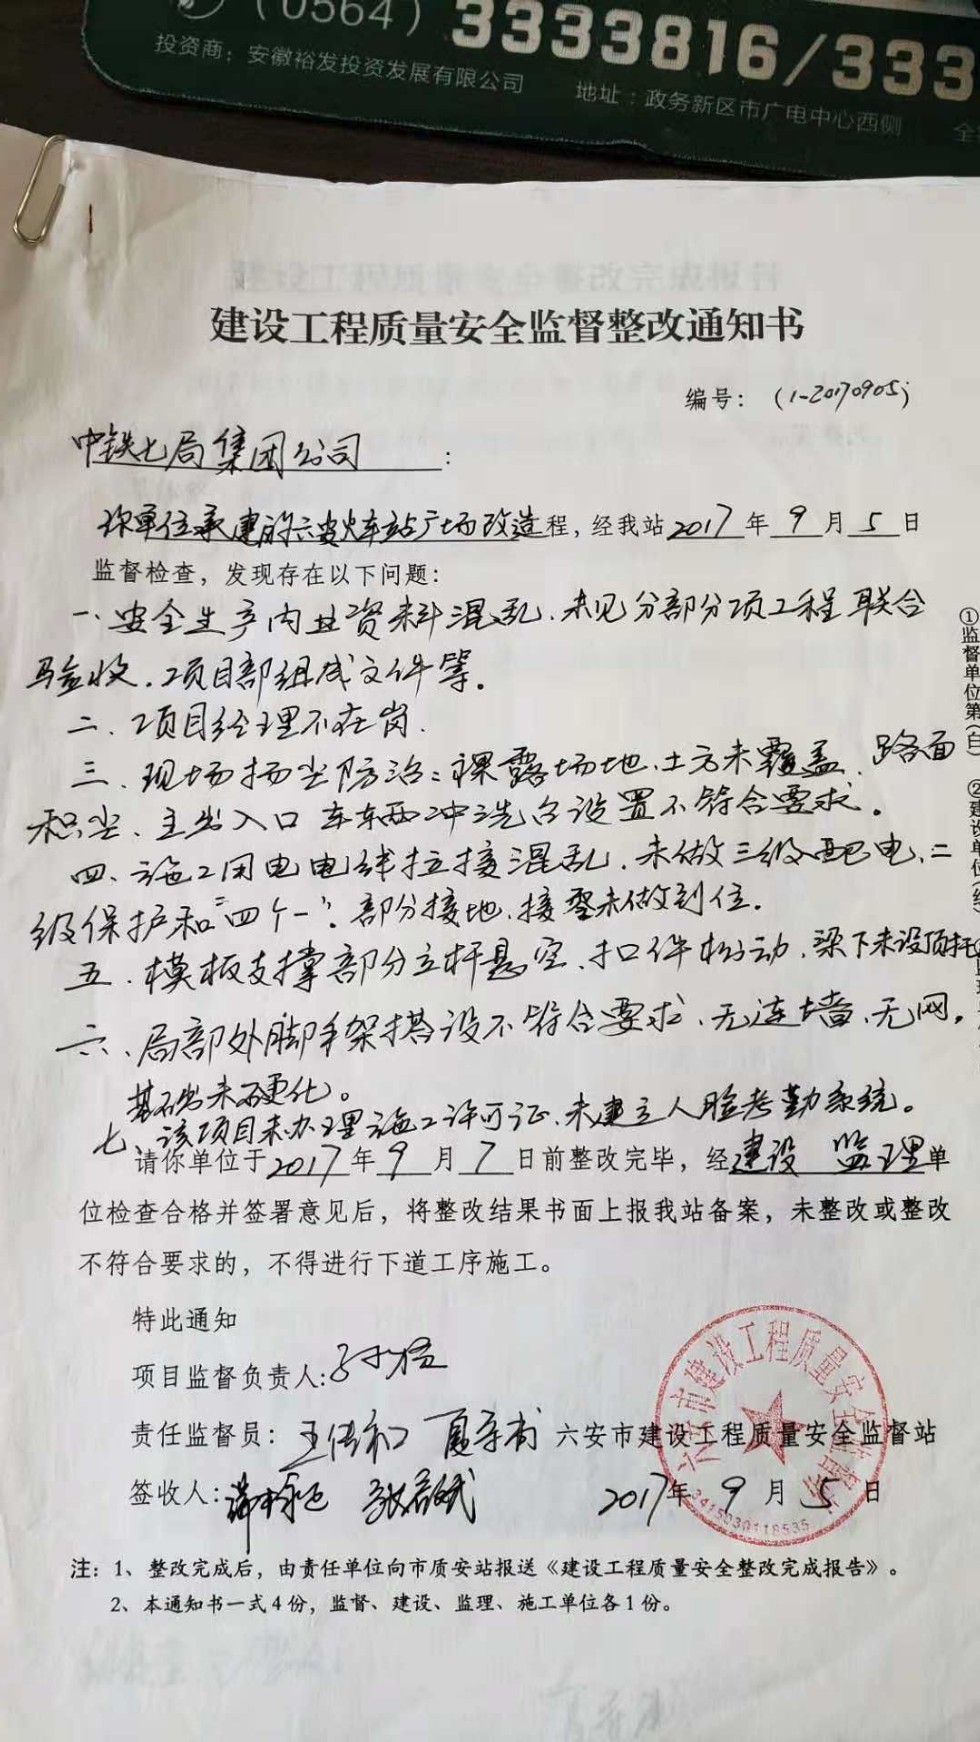 (0564) 3333816/333
投资商：安徽裕发投资发展有限公司
地址：政务新区市广电中心西侧
全
建设工程质量安全监督整改通知书
编号：（1-20170905）
中铁七局集团公司：
你单位承建的六安火车站广场改造程，经我站2017年9月5日
监督检查，发现存在以下问题：
一、安全生产内业资料混乱、未见分部分项工程联合
验收、项目部组成文件等。
二、项目经理不在岗.
三、现场扬尘防治：裸露场地、土方未覆盖、路面
积尘、主出入口车东西冲洗台设置不符合要求。
四、施工用电电线拉接混乱、未做三级配电、二
级保护和"四个一"；部分接地、接零未做到位。
五、模板支撑部分立杆悬空、扣件松动、梁下未设顶杆
六、局部外脚手架搭设不符合要求、无连墙、无网，
基础未硬化。
七、该项目未办理施工许可证、未建立人脸考勤系统。
请你单位于2017年9月7日前整改完毕，经建设 监理单
位检查合格并签署意见后，将整改结果书面上报我站备案，未整改或整改
不符合要求的，不得进行下道工序施工。
特此通知
项目监督负责人：
责任监督员： 六安市建设工程质量安全监督站
签收人： 2017年9月5日
六安市建设工程质量安全监督站
3415030118535
注：1、整改完成后，由责任单位向市质安站报送《建设工程质量安全整改完成报告》。
2、本通知书一式4份，监督、建设、监理、施工单位各1份。
①监督单位第(白) ②建设单位(